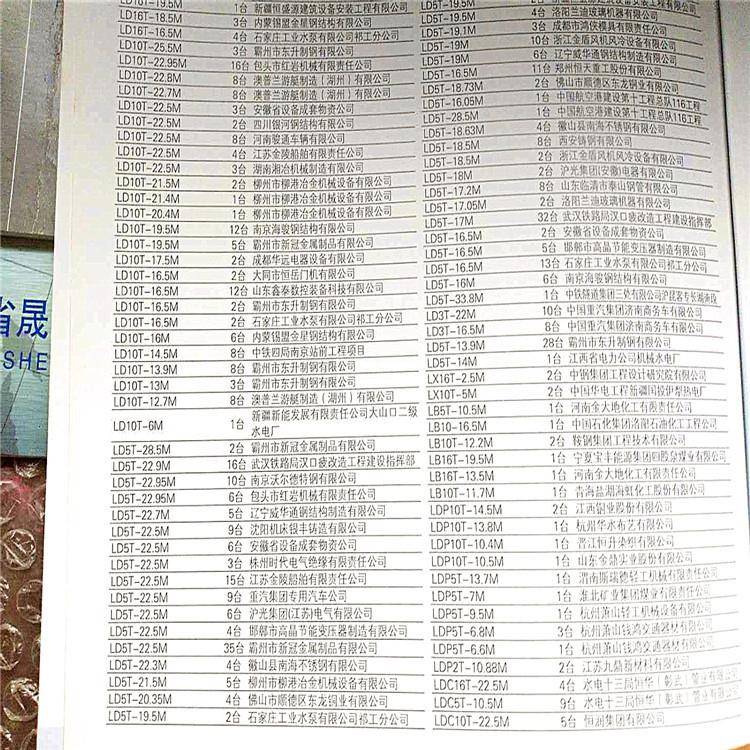 LD10T-19.5M 1台 新疆恒盛源建筑设备安装工程有限公司
LD16T-18.5M 3台 内蒙锡盟金星钢结构有限公司
LD10T-16.5M 4台 石家庄工业水泵有限公司祁工分公司
LD10T-25.5M 3台 霸州市东升制钢有限公司
LD10T-22.95M 16台 包头市红岩机械有限责任公司
LD10T-22.8M 8台 澳普兰游艇制造（湖州）有限公司
LD10T-22.7M 8台 澳普兰游艇制造（湖州）有限公司
LD10T-22.5M 3台 安徽省设备成套物资公司
LD10T-22.5M 2台 四川银河钢结构有限公司
LD10T-22.5M 8台 河南骏通车辆有限公司
LD10T-22.5M 4台 江苏金陵船舶有限责任公司
LD10T-22.5M 3台 湖南湘冶机械制造有限公司
LD10T-21.5M 2台 柳州市柳港冶金机械设备有限公司
LD10T-21.4M 1台 柳州市柳港冶金机械设备有限公司
LD10T-20.4M 1台 柳州市柳港冶金机械设备有限公司
LD10T-19.5M 12台 南京海骏钢结构有限公司
LD10T-19.5M 5台 霸州市新冠金属制品有限公司
LD10T-17.5M 2台 成都华远电器设备有限公司
LD10T-16.5M 2台 大同市恒岳门机有限公司
LD10T-16.5M 12台 山东鑫泰数控装备科技有限公司
LD10T-16.5M 2台 霸州市东升制钢有限公司
LD10T-16.5M 2台 石家庄工业水泵有限公司祁工分公司
LD10T-16M 6台 内蒙锡盟金星钢结构有限公司
LD10T-14.5M 8台 中铁四局南京站前工程项目
LD10T-13.9M 8台 霸州市东升制钢有限公司
LD10T-13M 3台 霸州市东升制钢有限公司
LD10T-12.7M 8台 澳普兰游艇制造（湖州）有限公司
LD10T-6M 1台 新疆新能发展有限责任公司大山口二级
水电厂
LD5T-28.5M 2台 霸州市新冠金属制品有限公司
LD5T-22.9M 16台 武汉铁路局汉口疲改造工程建设指挥部
LD5T-22.95M 10台 南京沃尔德特钢有限公司
LD5T-22.95M 6台 包头市红岩机械有限责任公司
LD5T-22.7M 5台 辽宁威华通钢结构制造有限公司
LD5T-22.5M 9台 沈阳机床银丰铸造有限公司
LD5T-22.5M 6台 安徽省设备成套物资公司
LD5T-22.5M 3台 株州时代电气绝缘有限责任公司
LD5T-22.5M 15台 江苏金陵船舶有限责任公司
LD5T-22.5M 9台 重汽集团专用汽车公司
LD5T-22.5M 6台 沪光集团(江苏)电气有限公司
LD5T-22.5M 4台 邯郸市高晶节能变压器制造有限公司
LD5T-22.5M 35台 霸州市新冠金属制品有限公司
LD5T-22.3M 4台 徽山县南海不锈钢有限公司
LD5T-21.5M 5台 柳州市柳港冶金机械设备有限公司
LD5T-20.35M 4台 佛山市顺德区东龙铜业有限公司
LD5T-19.5M 2台 石家庄工业水泵有限公司祁工分公司
LD5T-19.5M
LD5T-19.5M 4台 洛阳兰迪玻璃机器有限公司
LD5T-19.1M 2台 成都市鸿侠模具有限责任公司
LD5T-19M 10台 浙江金盾风机风冷设备有限公司
LD5T-19M 6台 辽宁威华通钢结构制造有限公司
LD5T-16.5M 11台 郑州恒天重工股份有限公司
LD5T-18.73M 2台 佛山市顺德区东龙铜业有限公司
LD5T-16.05M 1台 中国航空港建设第十工程总队116工程
LD5T-28.5M 1台 中国航空港建设第十工程总队116工程
LD5T-18.63M 4台 徽山县南海不锈钢有限公司
LD5T-18.5M 8台 西安铸钢有限公司
LD5T-18.5M 2台 浙江金盾风机风冷设备有限公司
LD5T-18M 2台 沪光集团(安徽)电器有限公司
LD5T-17.2M 8台 山东临清市泰山钢管有限公司
LD5T-17.05M 2台 洛阳兰迪玻璃机器有限公司
LD5T-17M 32台 武汉铁路局汉口疲改造工程建设指挥部
LD5T-16.5M 2台 安徽省设备成套物资公司
LD5T-16.5M 5台 邯郸市高晶节能变压器制造有限公司
LD5T-16.5M 13台 石家庄工业水泵有限公司祁工分公司
LD5T-16M 6台 南京海骏钢结构有限公司
LD5T-33.8M 1台 中铁隧道集团三处有限公司沪昆客专长湖南段
LD3T-22M 10台 中国重汽集团济南商务车有限公司
LD3T-16.5M 8台 中国重汽集团济南商务车有限公司
LD5T-13.9M 28台 霸州市东升制钢有限公司
LD5T-14M 1台 江西省电力公司机械水电厂
LX16T-2.5M 2台 中钢集团工程设计研究院有限公司
LX10T-5M 2台 中国华电工程新疆国投伊犁热电厂
LB5T-10.5M 1台 河南金大地化工有限责任公司
LB10-16.5M 1台 中国石化集团洛阳石油化工工程公司
LB10T-12.2M 2台 鞍钢集团工程技术有限公司
LB16T-19.5M 1台 宁夏宝丰能源集团四股泉煤业有限公司
LB16T-13.5M 1台 河南金大地化工有限责任公司
LB10T-11.7M 1台 青海盐湖海虹化工股份有限公司
LDP10T-14.5M 2台 江西铜业股份有限公司
LDP10T-13.8M 1台 杭州华水布艺有限公司
LDP10T-10.4M 1台 晋江恒升染织有限公司
LDP10T-10.5M 1台 山东金鼎实业股份有限公司
LDP5T-13.7M 1台 渭南斯瑞德轻工机械有限责任公司
LDP5T-7M 1台 淮北矿业集团煤业有限责任公司
LDP5T-9.5M 1台 杭州萧山轻工机械设备有限公司
LDP5T-6.8M 3台 杭州萧山钱鸿交通器材有限公司
LDP5T-6.6M 1台 杭州萧山钱鸿交通器材有限公司
LDP2T-10.88M 2台 江苏九鼎新材料有限公司
LDC16T-22.5M 4台 水电十三局恒华（彰武）管业有限公司
LDC5T-10.5M 9台 水电十三局恒华（彰武）管业有限公司
LDC10T-22.5M 5台 恒润集团有限公司
省晟
SHE